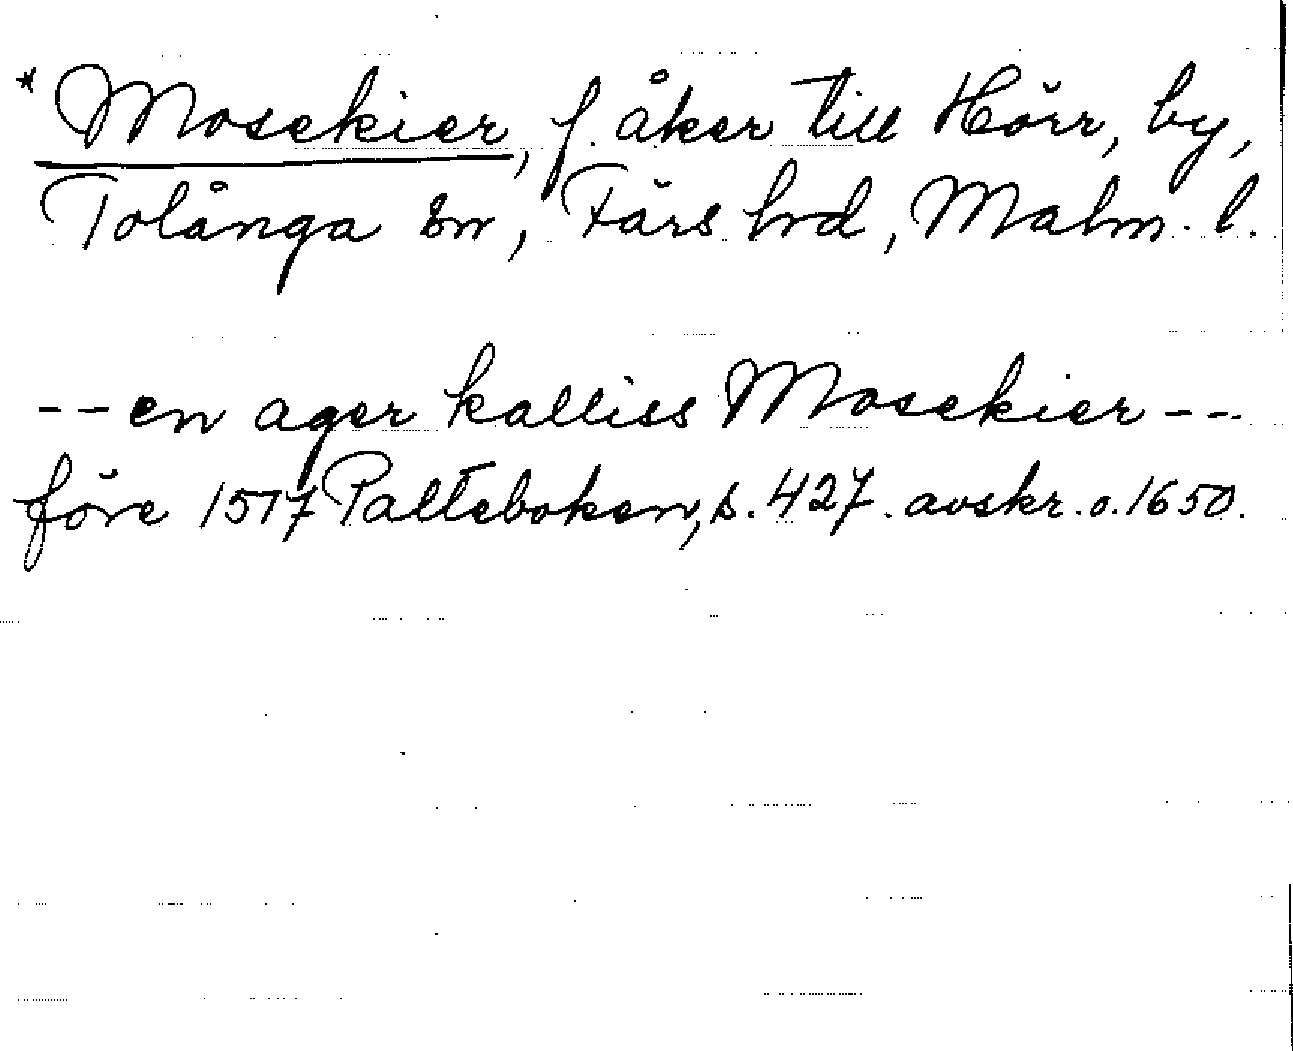 * Mosekier, f. åker till Hörr, by,
Tolånga sn, Färs hrd, Malm. l.
-- en ager kalliss Mosekier --
före 1517 Palteboken, s. 427. avskr. o. 1650.